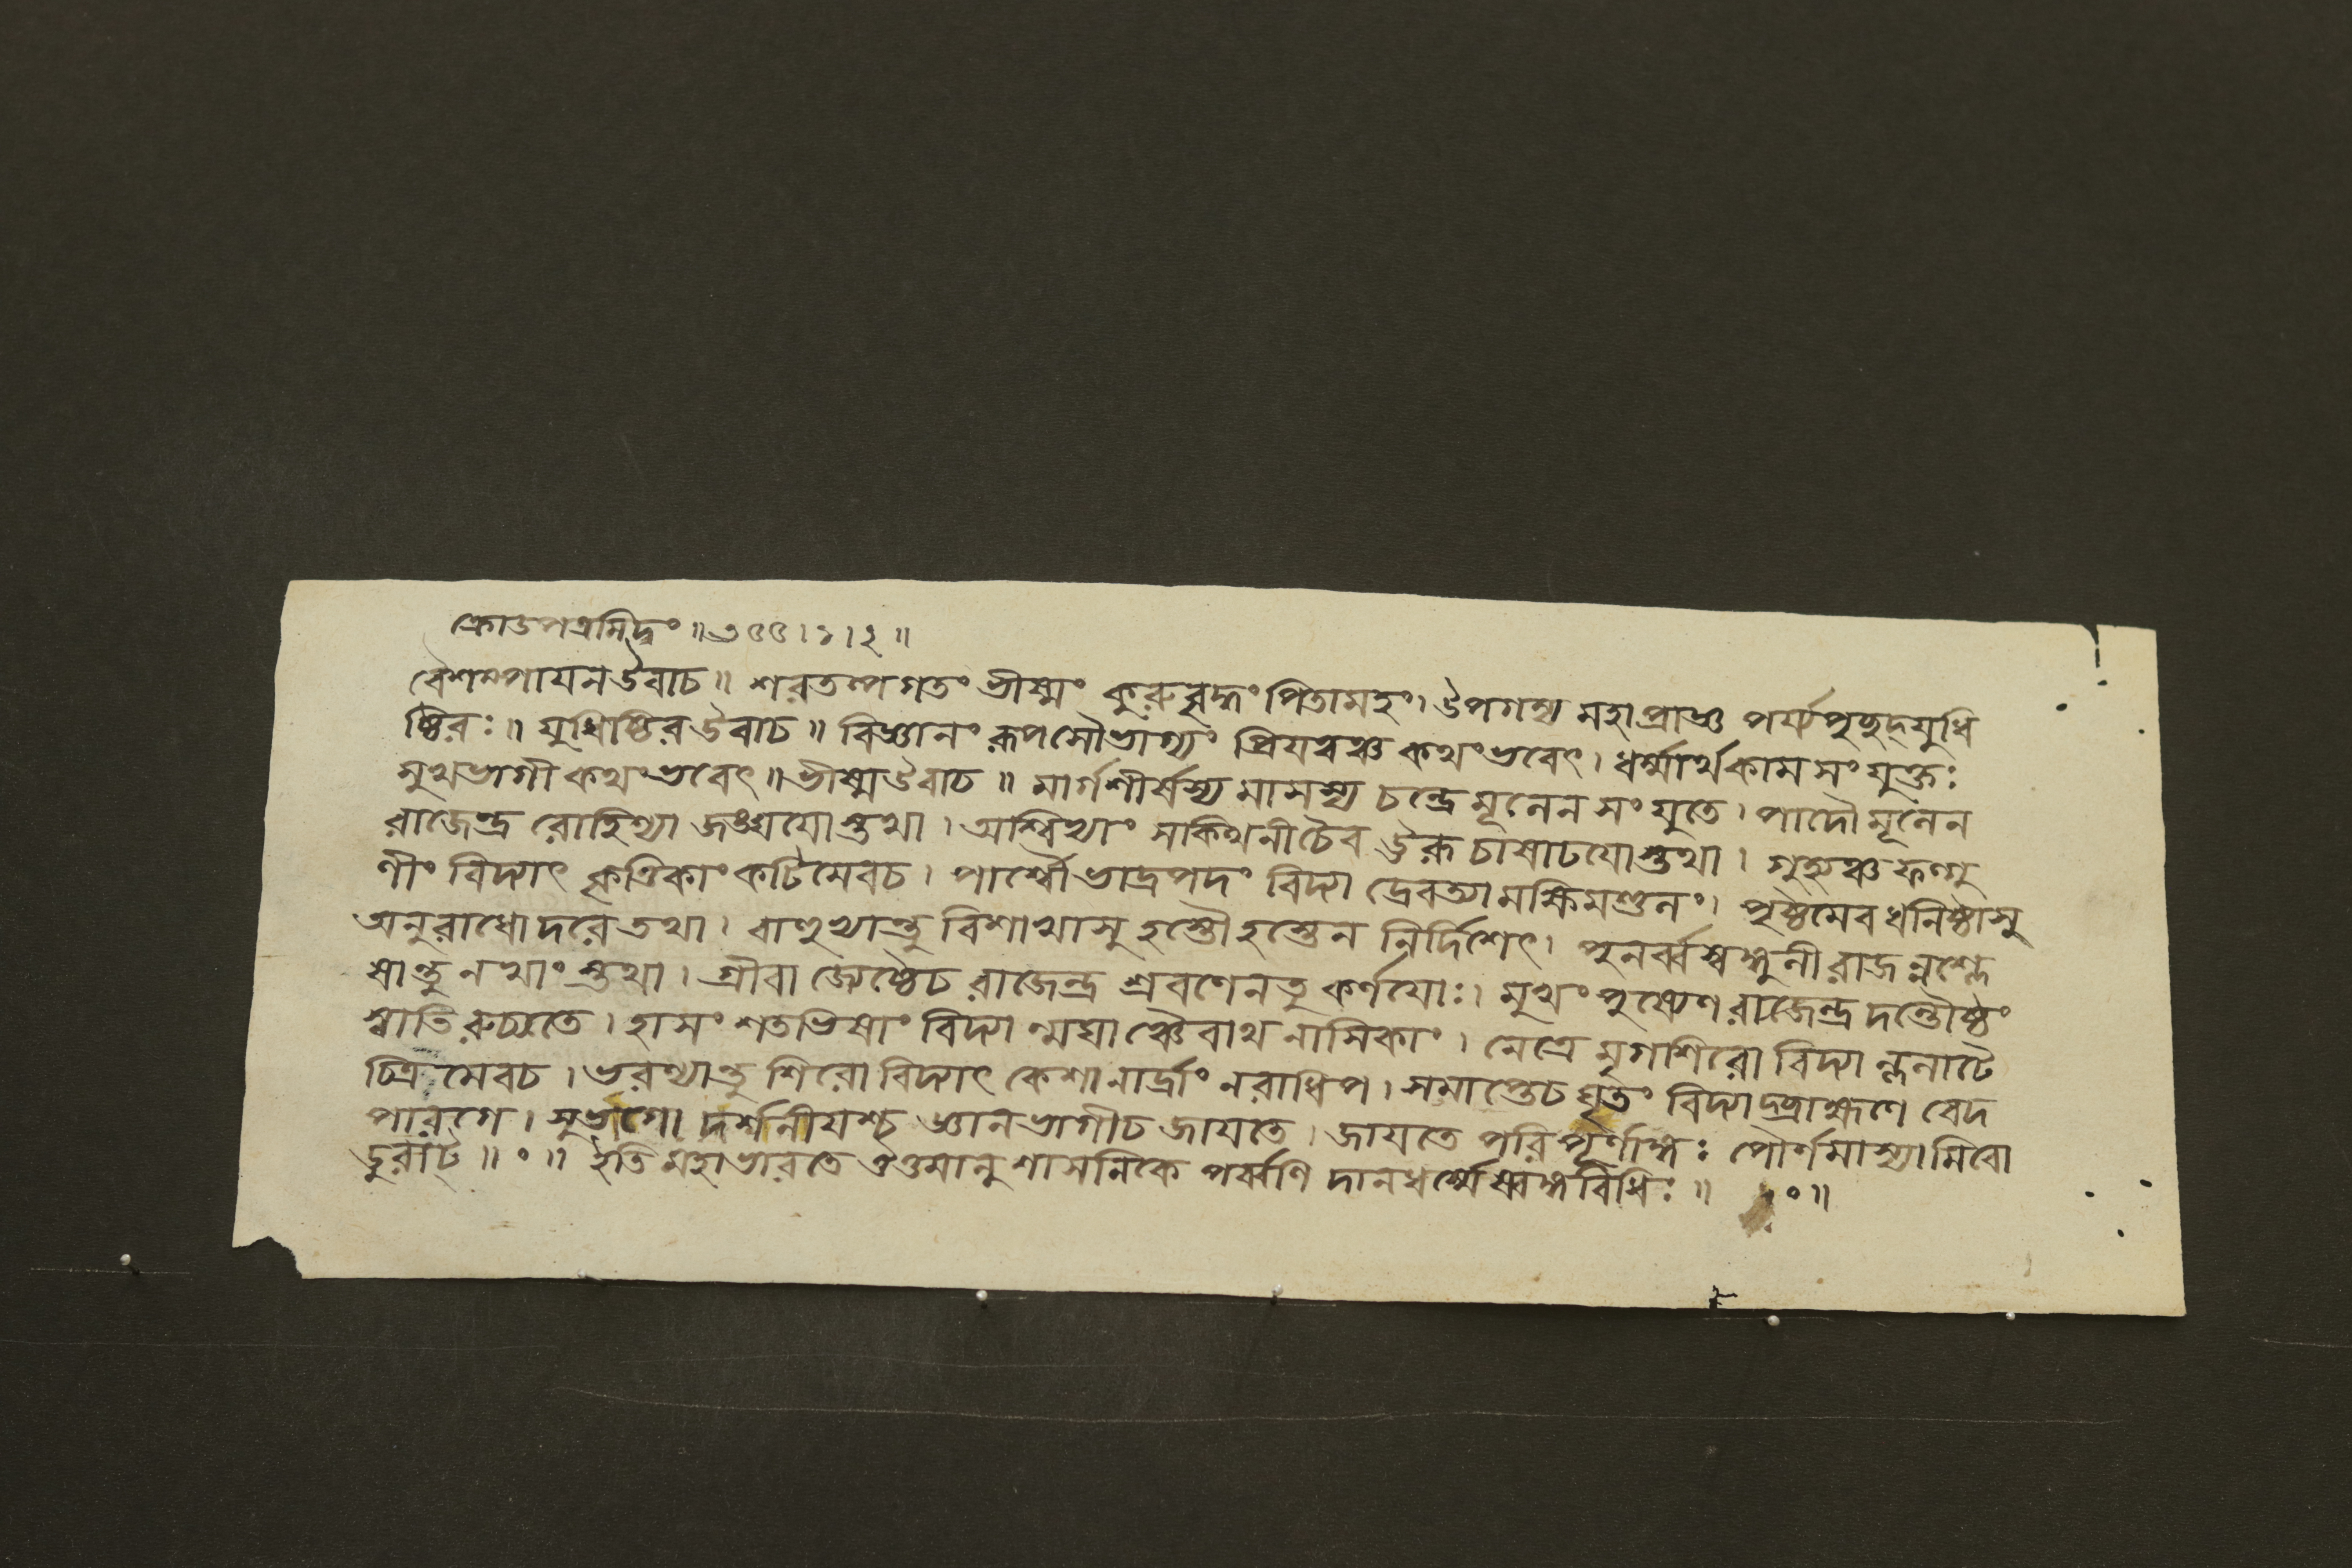 ক্রোডপত্রমিদং ॥ ৩৫৫ । ১ । ২ ॥
বৈশম্পাযনউবাচ ॥ শরতল্পগতং ভীষ্মং কুরুবৃদ্ধং পিতামহং । উপগম্য মহাপ্রাজ্ঞ পর্য্যপৃছদ্যুধি
ষ্ঠিরঃ ॥ যুধিষ্ঠিরউবাচ ॥ বিজ্ঞানং রূপসৌভাগ্যং প্রিযত্বঞ্চ কথংভবেৎ । ধর্ম্মার্থকামসংযুক্তঃ
সুখভাগী কথংভবেৎ ॥ ভীষ্মউবাচ ॥ মার্গশীর্ষস্য মাসস্য চন্দ্রে মূলেন সংযুতে । পাদৌ মূলেন
রাজেন্দ্র রোহিণ্যা জঙ্ঘযোস্তথা । অশ্বিন্যাং সক্থিনীচৈব ঊরূ চাষাঢযোস্তথা । গুহ্যঞ্চ ফল্গু
ণীং বিদ্যাৎ কৃত্তিকাং কটিমেবচ । পার্শ্বৌ ভাদ্রপদং বিদ্যা দ্রেবত্যামক্ষিমণ্ডলং । পৃষ্ঠমেব ধনিষ্ঠাসু
অনুরাধোদরে তথা । বাহুভ্যান্তু বিশাখাসু হস্তৌ হস্তেন নির্দিশেৎ । পুনর্ব্বস্বঙ্গুলী রাজন্নশ্লে
ষান্তু নখাংস্তথা । গ্রীবা জ্যেষ্ঠৈচ রাজেন্দ্র শ্রবণেনতু কর্ণযোঃ । মুখং পুষ্যেণ রাজেন্দ্র দন্তৌষ্ঠং
স্বাতিরুচ্যতে । হাসং শতভিষাং বিদ্যান্মঘাঞ্চৈবাথ নাসিকাং । নেত্রে মৃগশিরো বিদ্যাল্ললাটে
চিত্রমেবচ । ভরণ্যান্তু শিরো বিদ্যাৎ কেশানার্দ্রাং নরাধিপ । সমাপ্তেচ ঘৃতং বিদ্যাদ্ব্রাহ্মণে বেদ
পারগে । সুভগো দর্শনীযশ্চ জ্ঞানভাগীচ জাযতে । জাযতে পরিপূর্ণাঙ্গঃ পৌর্ণমাস্যামিবো
ডুরাট্ ॥ ॰ ॥ ইতি মহাভারতে আনুশাসনিকে পর্ব্বণি দানধর্ম্মে বিধিঃ ॥ ॰ ॥